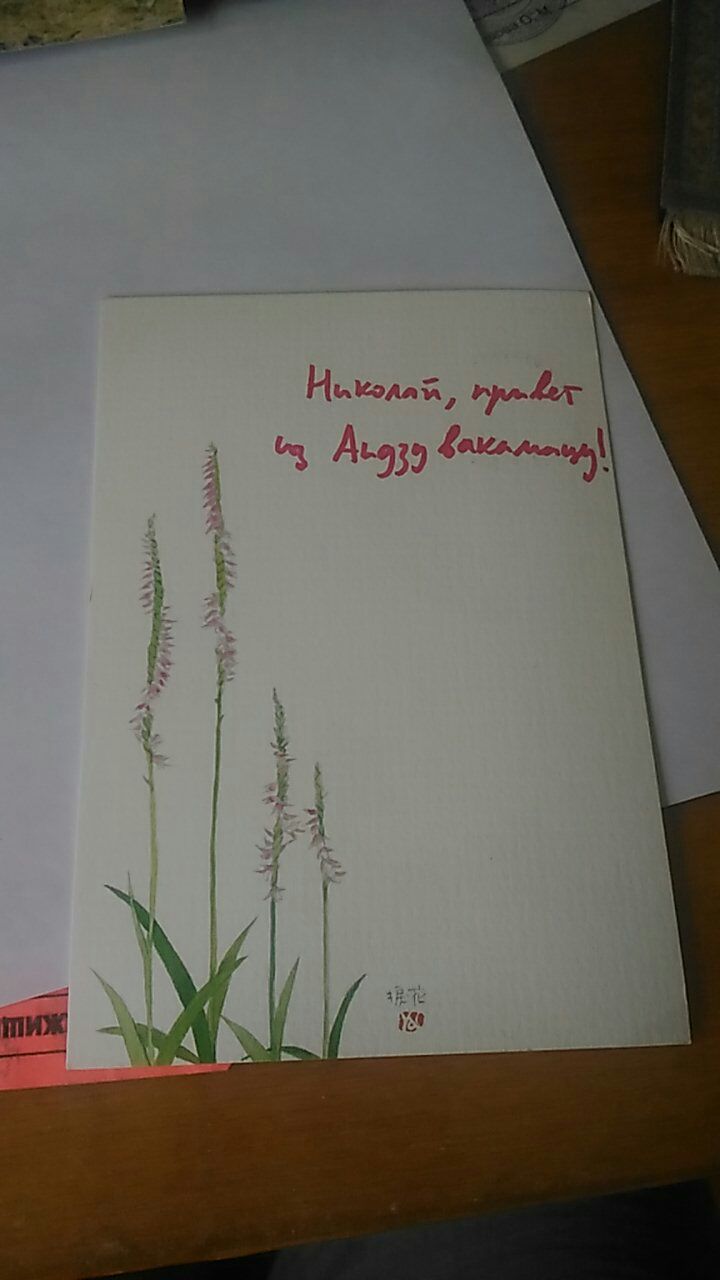 Николай, привет
из Аидзувакамацу!
捩花
тиж